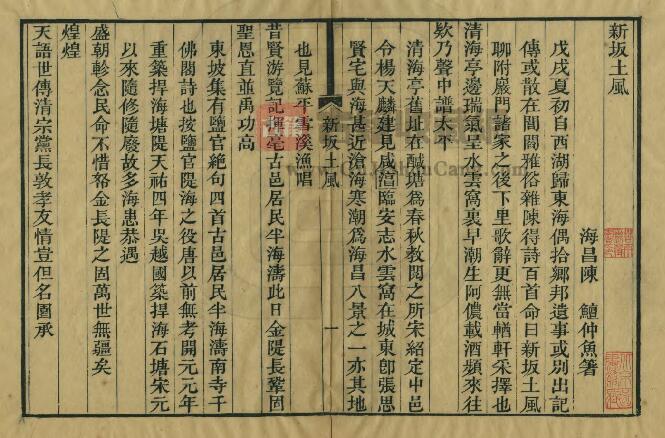 新坂土風
海昌陳　鱣仲魚著
戊戌夏初自西湖歸東海偶拾鄉邦遺事或别出記
傳或散在閭閻雅俗雜陳得詩百首命曰新坂土風
聊附嚴門諸家之後下里歌辭更無當輶軒采擇也
清海亭邊瑞氣呈水雲窩裏早潮生阿儂載酒頻來往
欸乃聲中譜太平
清海亭舊址在鹹塘爲春秋教閱之所宋紹定中邑
令楊天麟建見咸淳臨安志水雲窩在城東卽張思
賢宅與海甚近滄海寒潮爲海昌八景之一亦其地
新坂土風
一
也見蘇平雪溪漁唱
昔賢游覽記 古邑居民半海濤此日金隄長鞏固
聖恩直並禹功高
東坡集有鹽官絕句四首古邑居民半海濤南寺千
佛閣詩也按鹽官隄海之役唐以前無考開元元年
重築捍海塘隄天祐四年吳越國築捍海石塘宋元
以來隨修隨廢故多海患恭遇
盛朝軫念民命不惜帑金長隄之固萬世無疆矣
煌煌
天語世傳清宗黨長敦孝友情豈但名圖承